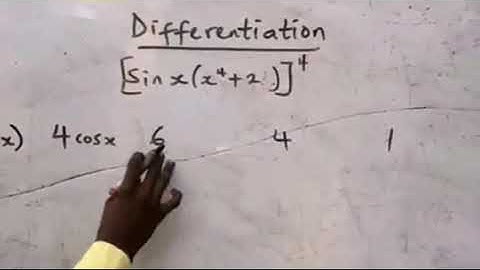 Differentiation
[sin x(x⁴+2)]⁴
x) 4cosx 6 4 1